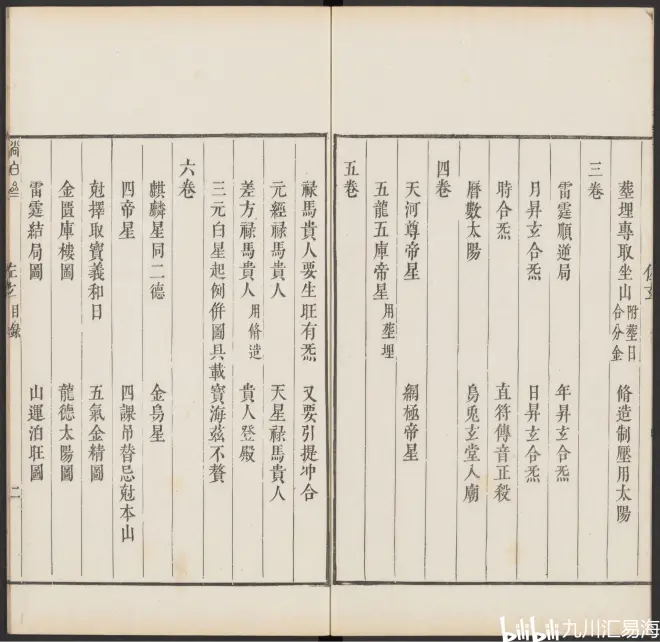 葬埋專取坐山 附葬日合分金 脩造制壓用太陽
三卷
雷霆順逆局 年昇玄合炁
月昇玄合炁 日昇玄合炁
時合炁 直符傳音正殺
曆數太陽 烏兎玄堂入廟
四卷
天河尊帝星 綱極帝星
五龍五庫帝星 用葬埋
五卷
祿馬貴人要生旺有炁 又要引提冲合
元經祿馬貴人 天星祿馬貴人
差方祿馬貴人 用脩造 貴人登殿
三元白星起例併圖具載寶海茲不贅
六卷
麒麟星同二德 金烏星
四帝星 四課吊替忌尅本山
尅擇取寶義和日 五氣金精圖
金匱庫樓圖 龍德太陽圖
雷霆結局圖 山運泊旺圖
尚白齋
佐玄目錄
二
bilibili 九川汇易海